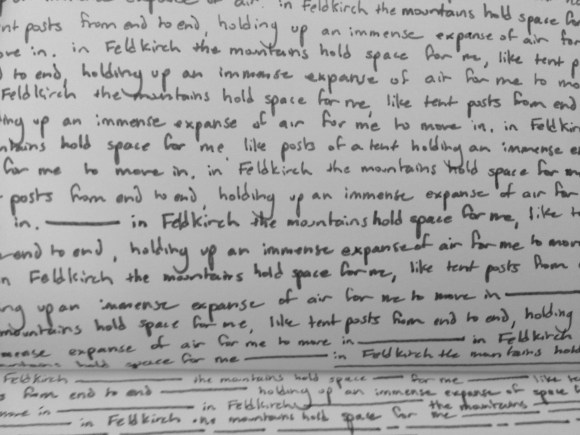 of air. in Feldkirch the mountains hold space for
tent posts from end to end, holding up an immense expanse of air for
move in. in Feldkirch the mountains hold space for me, like tent p
d to end, holding up an immense expanse of air for me to mo
Feldkirch the mountains hold space for me, like tent posts from end
ding up an immense expanse of air for me to move in. in Feldkir
ntains hold space for me, like posts of a tent holding an immense e
for me to move in. in Feldkirch the mountains hold space for m
posts from end to end, holding up an immense expanse of air for
in. ——— in Feldkirch the mountains hold space for me, like t
end to end, holding up an immense expanse of air for me to move
n Feldkirch the mountains hold space for me, like tent posts from
ng up an immense expanse of air for me to move in ———
mountains hold space for me, like tent posts from end to end, holding
mense expanse of air for me to move in ——— in Feldkirch
mountains hold space for me ——— in Feldkirch the mountains hold
Feldkirch ——— the mountains hold space ——— for me ——— like te
s from end to end ——— holding up an immense expanse of space
move in ——— in Feldkirch ——— the mountains hold space for me the mountains
——— in Feldkirch the mountains hold space for me